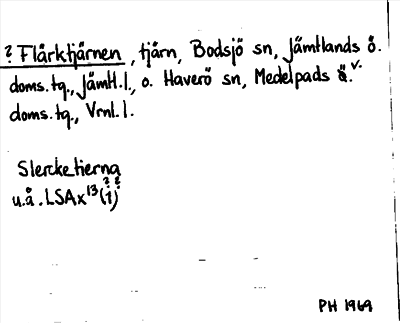 ? Flårktjärnen, tjärn, Bodsjö sn, Jämtlands ö.
doms.tg., Jämtl.l., o. Haverö sn, Medelpads v.
doms.tg., Vrnl.l.
Slercketierna
u.å. LSA x¹³ (i)
? ?
PH 1969